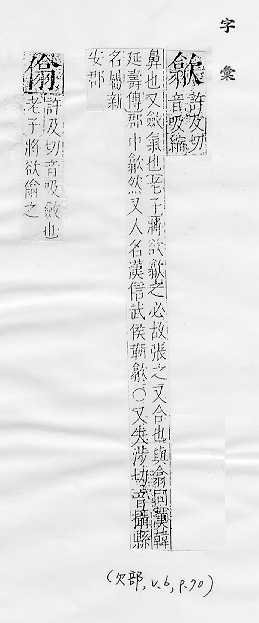 字彙
歙 許及切
音吸縮
鼻也又斂氣也老子將欲歙之必故張之又合也與翕同漢韓
延壽傳郡中歙然又人名漢信武侯靳歙〇又失涉切音攝縣
名屬新
安郡
許及切音吸斂也
老子將欲之
(欠部, v.6, p.70)